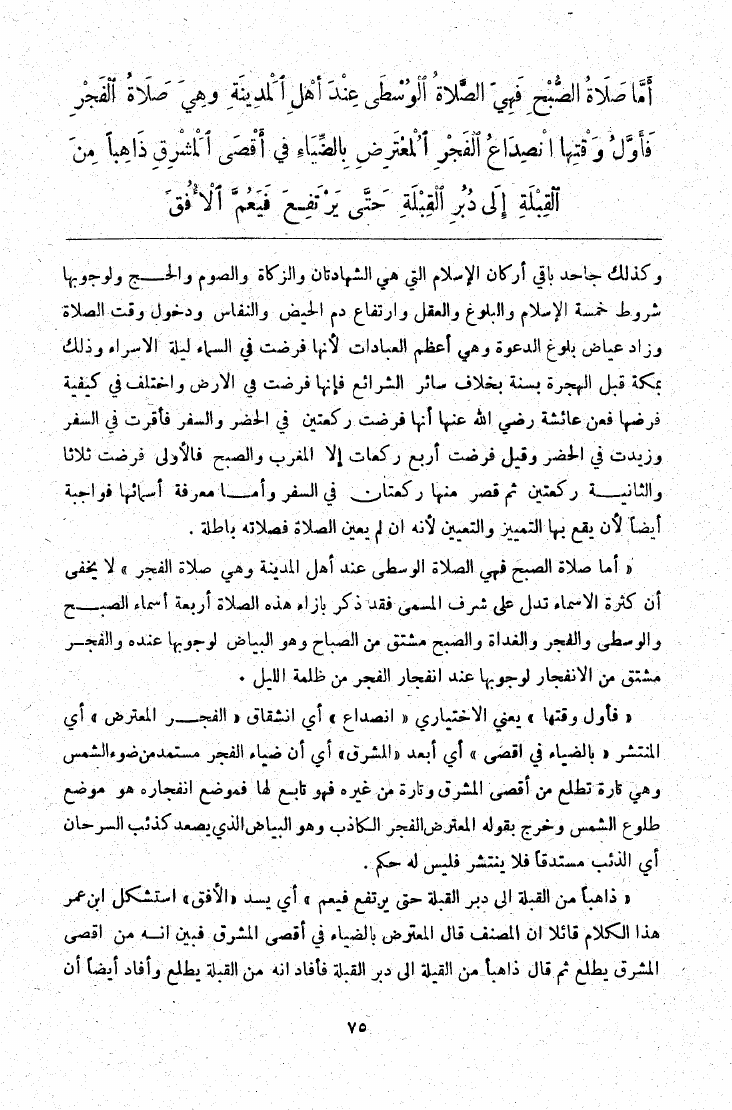 أَمَّا صَلَاةُ الصُّبْحِ فَهِيَ الصَّلاةُ ٱلْوُسْطَى عِنْدَ أَهْلِ ٱلْمَدِينَةِ وهِيَ صَلَاةُ ٱلْفَجْرِ
فَأَوَّلُ وَقْتِهَا انْصِدَاعُ ٱلْفَجْرِ ٱلْمُعْتَرِضِ بِالضِّيَاءِ فِي أَقْصَى ٱلْمَشْرِقِ ذَاهِباً مِنَ
ٱلْقِبْلَةِ إِلَى دُبُرِ ٱلْقِبْلَةِ حَتَّى يَرْتَفِعَ فَيَعُمَّ ٱلْأُفُقَ
وكذلك جاحد باقي أركان الإسلام التي هي الشهادتان والزكاة والصوم والحج ولوجوبها
شروط خمسة الإسلام والبلوغ والعقل وارتفاع دم الحيض والنفاس ودخول وقت الصلاة
وزاد عياض بلوغ الدعوة وهي أعظم العبادات لأنها فرضت في السماء ليلة الاسراء وذلك
بمكة قبل الهجرة بسنة بخلاف سائر الشرائع فإنها فرضت في الارض واختلف في كيفية
فرضها فعن عائشة رضي الله عنها أنها فرضت ركعتين في الحضر والسفر فأقرت في السفر
وزيدت في الحضر وقيل فرضت أربع ركعات إلا المغرب والصبح فالأولى فرضت ثلاثا
والثانية ركعتين ثم قصر منها ركعتان في السفر وأما معرفة أسمائها فواجبة
أيضاً لأن يقع بها التمييز والتعيين لأنه ان لم يعين الصلاة فصلاته باطلة .
« أما صلاة الصبح فهي الصلاة الوسطى عند أهل المدينة وهي صلاة الفجر » لا يخفى
أن كثرة الاسماء تدل على شرف المسمى فقد ذكر بازاء هذه الصلاة أربعة أسماء الصبح
والوسطى والفجر والغداة والصبح مشتق من الصباح وهو البياض لوجوبها عنده والفجر
مشتق من الانفجار لوجوبها عند انفجار الفجر من ظلمة الليل .
« فأول وقتها » يعني الاختياري « انصداع » أي انشقاق « الفجر المعترض » أي
المنتشر « بالضياء في اقصى » أي أبعد «المشرق» أي أن ضياء الفجر مستمد من ضوء الشمس
وهي تارة تطلع من أقصى المشرق وتارة من غيره فهو تابع لها فموضع انفجاره هو موضع
طلوع الشمس وخرج بقوله المعترض الفجر الكاذب وهو البياض الذي يصعد كذئب السرحان
أي الذئب مستدقاً فلا ينتشر فليس له حكم .
« ذاهباً من القبلة الى دبر القبلة حتى يرتفع فيعم » أي يسد «الأفق» استشكل ابن عمر
هذا الكلام قائلا ان المصنف قال المعترض بالضياء في أقصى المشرق فبين انه من اقصى
المشرق يطلع ثم قال ذاهباً من القبلة الى دبر القبلة فأفاد انه من القبلة يطلع وأفاد أيضاً أن
٧٥